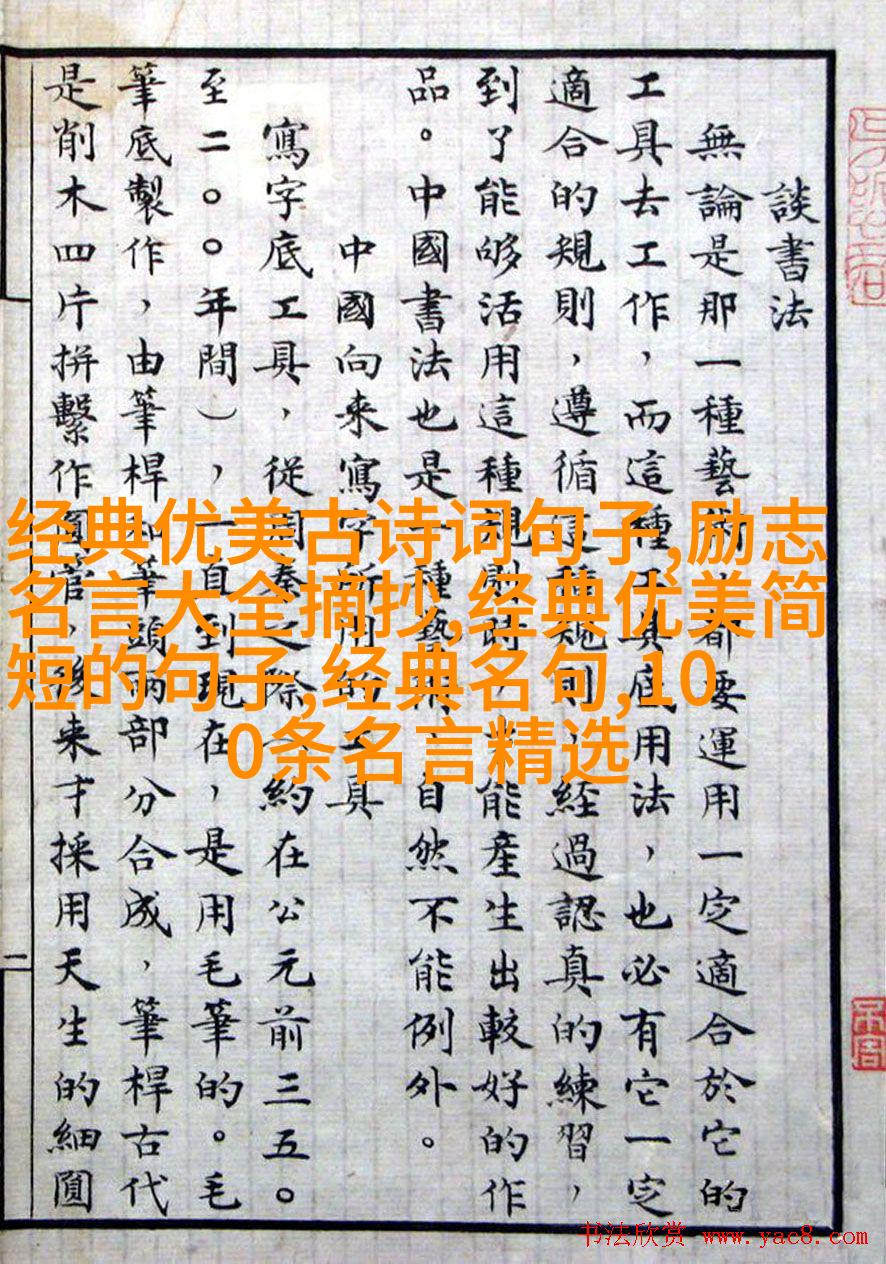 談書法
無論是那一種藝術，都要運用一定適合於它的
工具去工作，而這種工具底用法，也必有它一定
適合的規則，遵循這種規則，經過認真的練習，
到了能够活用這種規則時，才能產生出較好的作
品。中國書法也是一種藝術，自然不能例外。
中國向来寫字所用的工具
寫字底工具，從周秦之際（約在公元前三五〇
至二〇〇年間），一直到現在，是用毛筆的。毛
筆底製作，由筆桿和筆頭兩部分合成，筆桿古代
是削木四片拼繫作圓管，後来才採用天生的細圓
二
经典优美古诗词句子,励志
名言大全摘抄,经典优美简
短的句子,经典名句,10
0条名言精选
书法欣赏 www.yac8.com